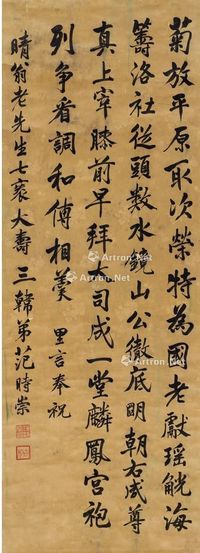 菊放平原取次榮特為國老獻瑤觥海
籌洛社從頭數水鏡山公徹底明朝右咸尊
真上宰膝前早拜大司成一堂麟鳳宮袍
列爭看調和傅相羹 里言奉祝
晴翁老先生七袠大壽 三韓弟范時崇
Artron.Net
Artron.Net
Artron.Net
Artron.Net